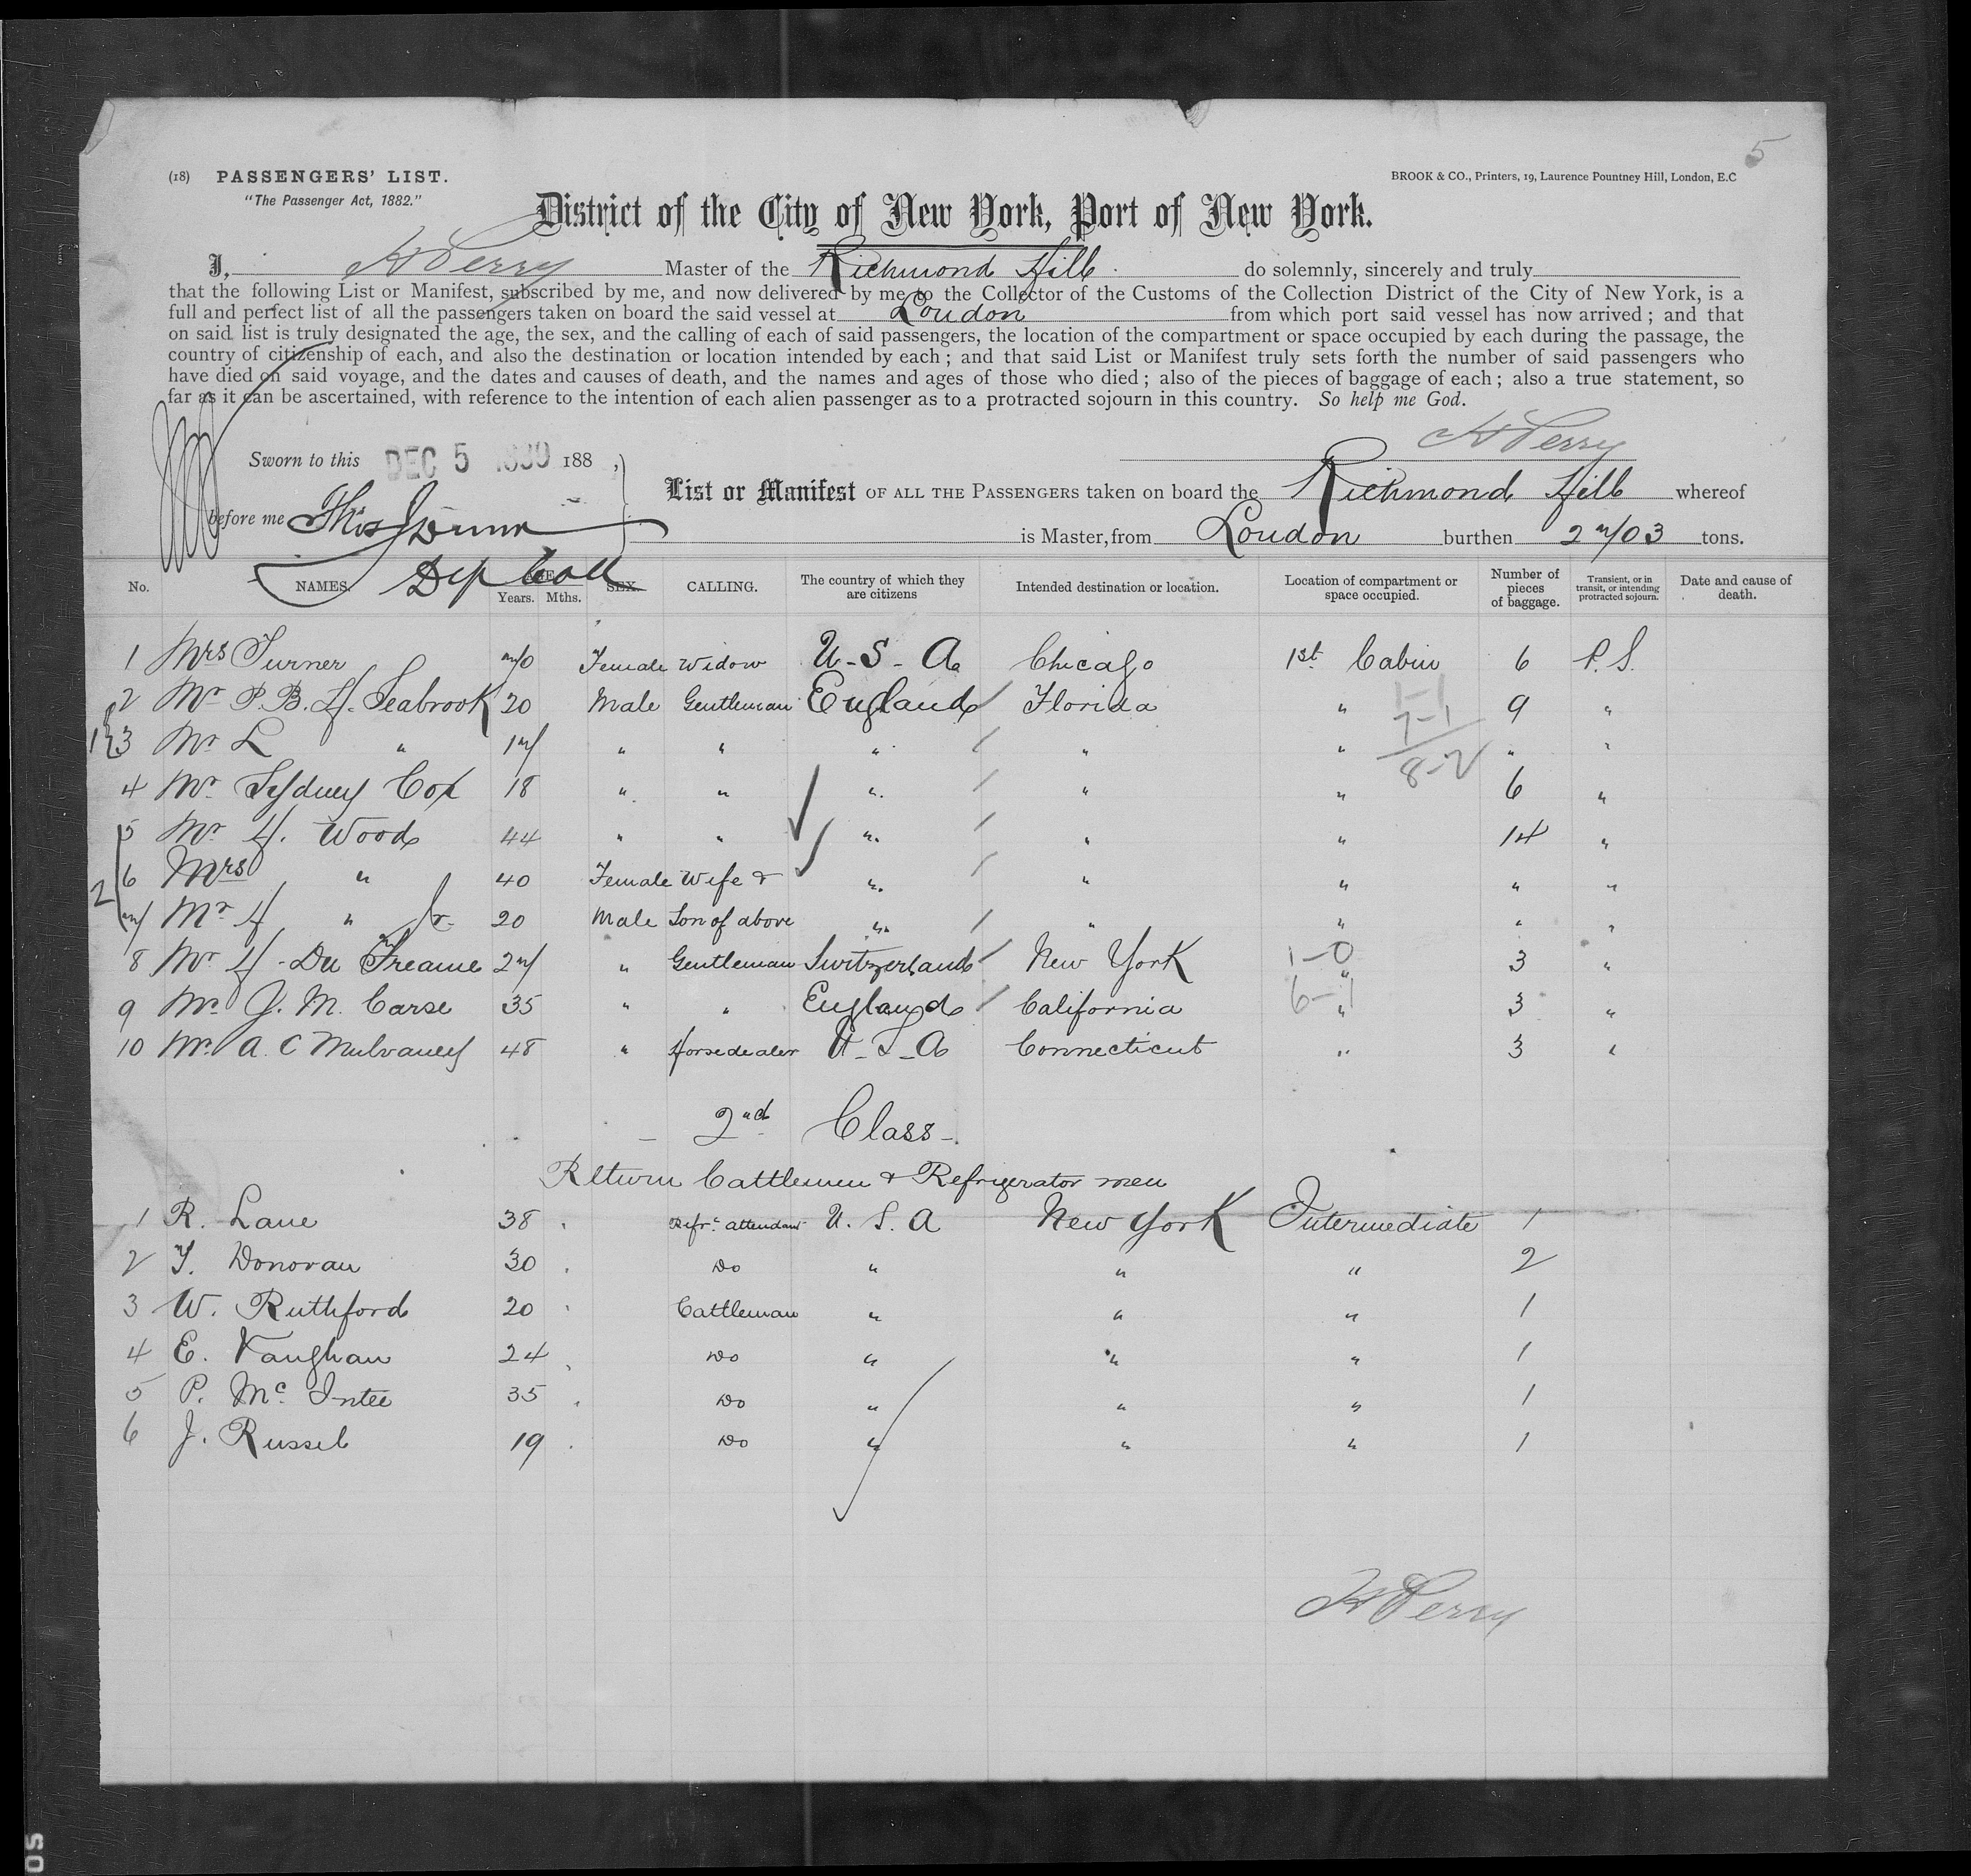 5
(18) PASSENGERS' LIST.
"The Passenger Act, 1882."
BROOK & CO., Printers, 19, Laurence Pountney Hill, London, E.C
District of the City of New York, Port of New York.
I, H Perry Master of the Richmond Hill do solemnly, sincerely and truly
that the following List or Manifest, subscribed by me, and now delivered by me to the Collector of the Customs of the Collection District of the City of New York, is a
full and perfect list of all the passengers taken on board the said vessel at London from which port said vessel has now arrived; and that
on said list is truly designated the age, the sex, and the calling of each of said passengers, the location of the compartment or space occupied by each during the passage, the
country of citizenship of each, and also the destination or location intended by each; and that said List or Manifest truly sets forth the number of said passengers who
have died on said voyage, and the dates and causes of death, and the names and ages of those who died; also of the pieces of baggage of each; also a true statement, so
far as it can be ascertained, with reference to the intention of each alien passenger as to a protracted sojourn in this country. So help me God.
H Perry
Sworn to this DEC 5 188 ,
before me Thos J Dunn
Dep Coll
List or Manifest OF ALL THE PASSENGERS taken on board the Richmond Hill whereof
is Master, from London burthen 2703 tons.
No. NAMES. AGE Years. Mths. SEX. CALLING. The country of which they are citizens Intended destination or location. Location of compartment or space occupied. Number of pieces of baggage. Transient, or in transit, or intending protracted sojourn. Date and cause of death.
1 Mrs Turner 70 Female Widow U-S-A Chicago 1st Cabin 6 P.S.
2 Mr P.B.H. Seabrook 20 Male Gentleman England Florida " 9 "
3 Mr L " 17 " " " " " " "
4 Mr Sydney Cox 18 " " " " " 6 "
5 Mr H. Wood 44 " " " " " 14 "
6 Mrs " 40 Female Wife & " " " " "
7 Mr H " Jr 20 Male Son of above " " " " "
8 Mr H - Du 27 " Gentleman Switzerland New York " 3 "
9 Mr J. M. Carse 35 " " England California " 3 "
10 Mr A. C Mulvaney 48 " Horsedealer U-S-A Connecticut " 3 "
1-1
7-1
8-2
1-0
6-1
2nd Class
Return Cattlemen & Refrigerator men
1 R. Lane 38 Refr. attendant U. S. A New York Intermediate 1
2 T. Donovan 30 Do " " " 2
3 W. Ruthford 20 Cattleman " " " 1
4 E. Vaughan 24 Do " " " 1
5 P. Mc Intee 35 Do " " " 1
6 J. Russel 19 Do " " " 1
H Perry